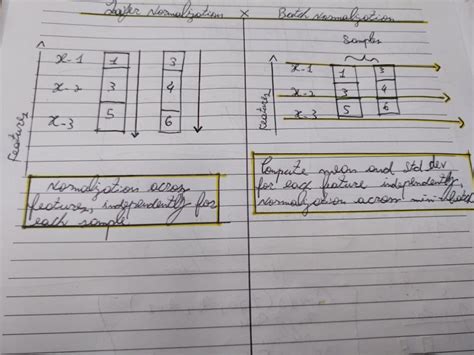 Layer Normalization x Batch Normalization
Samples
x-1 1 3
x-2 3 4
x-3 5 6
Features
x-1 1 3
x-2 3 4
x-3 5 6
Features
Normalization across
features, independently for
each sample
Compute mean and std dev
for each feature independently,
normalization across mini batch